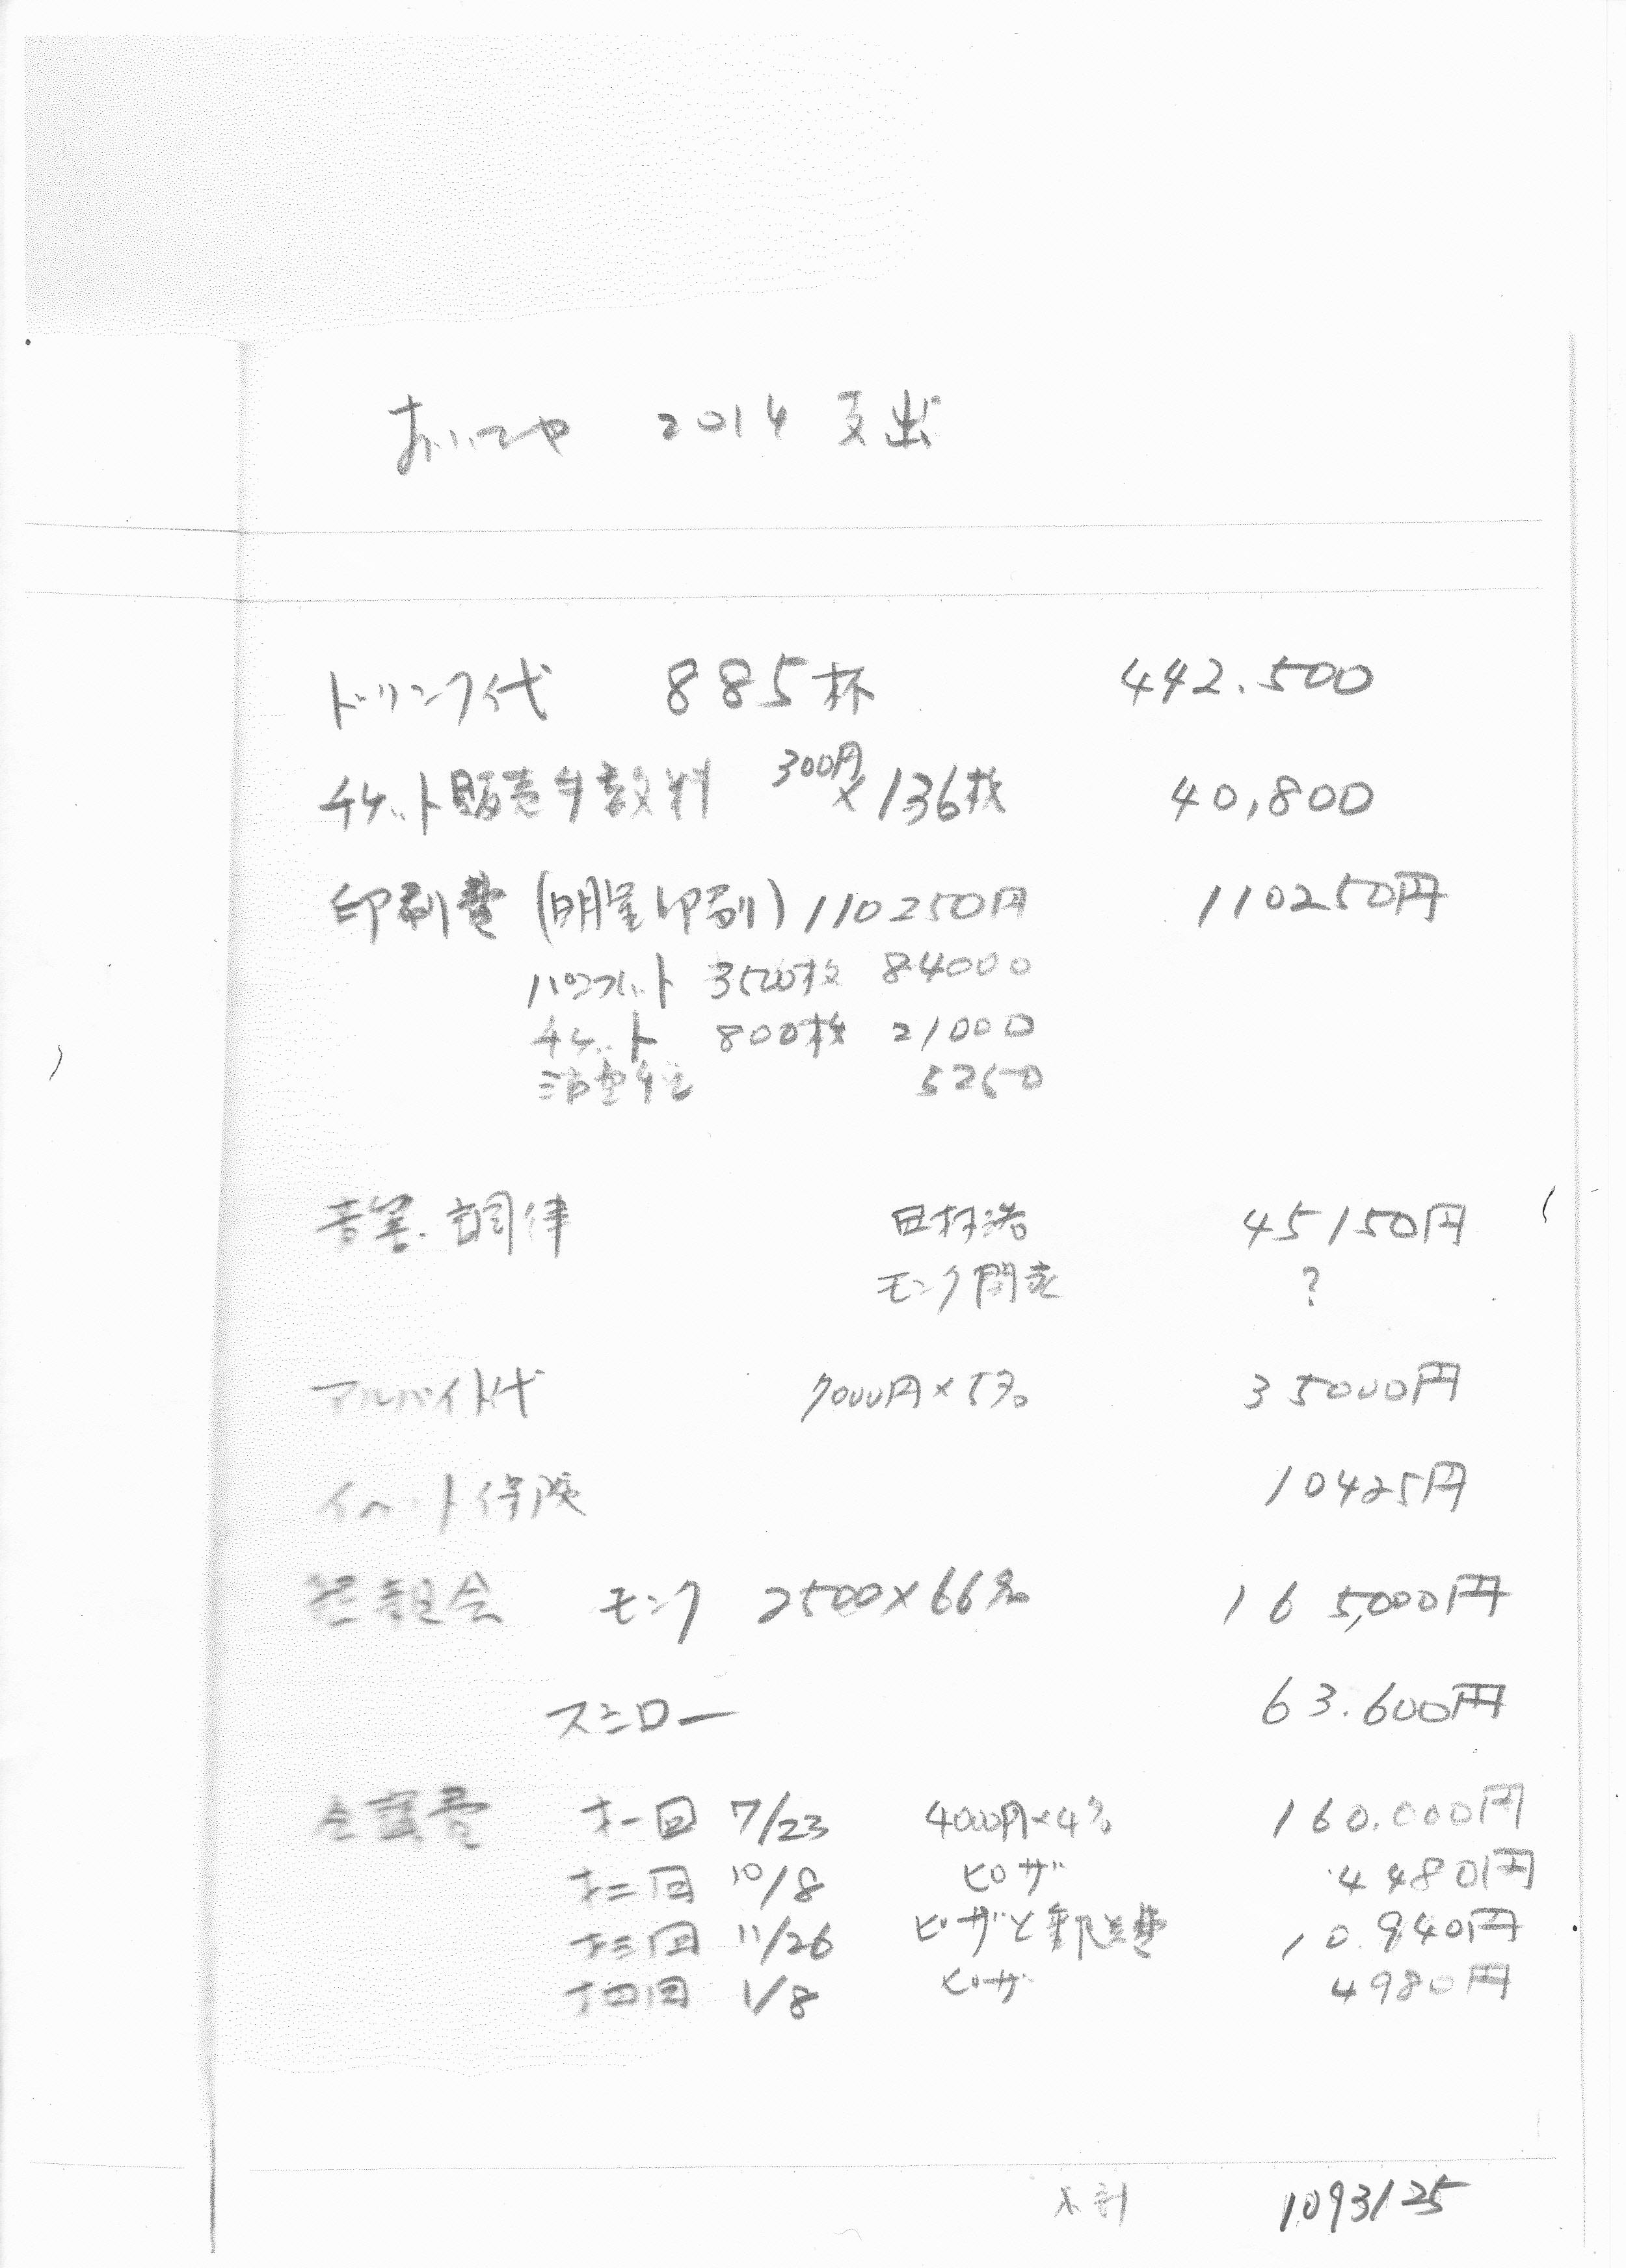 おいでや 2014 支出
ドリンク代 885杯 442.500
チケット販売手数料 300円×136枚 40,800
印刷費 (明星印刷) 110250円 110250円
パンフレット 3500枚 84000
チケット 800枚 21000
5250
音響.調律 45150円
モンク ?
アルバイト代 7000円×5名 35000円
イベント保険 10425円
懇親会 モンク 2500×66名 165,000円
スミロー 63.600円
会議費 才一回 7/23 4000円×4名 160.000円
才二回 10/8 ピザ 4480円
才三回 11/26 ピザと郵送費 10.940円
才四回 1/8 ピザ 4980円
1093125